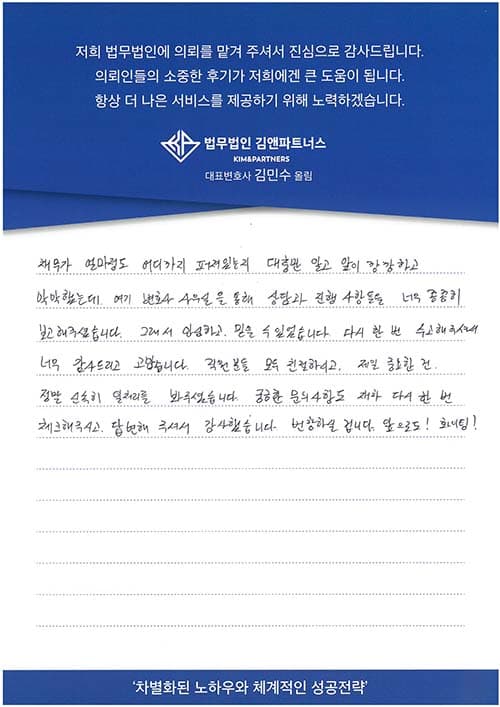 저희 법무법인에 의뢰를 맡겨 주셔서 진심으로 감사드립니다.
의뢰인들의 소중한 후기가 저희에겐 큰 도움이 됩니다.
항상 더 나은 서비스를 제공하기 위해 노력하겠습니다.
법무법인 김앤파트너스
KIM&PARTNERS
대표변호사 김민수 올림
채무가 얼마정도 어디까지 퍼져있는지 대충만 알고 앞이 깜깜하고
막막했는데 여기 변호사 사무실을 통해 상담과 진행 사항들을 너무 꼼꼼히
보고해주셨습니다. 그래서 안심하고, 믿을 수 있었습니다. 다시 한 번 수고해주셔서
너무 감사드리고 고맙습니다. 직원분들 모두 친절하시고, 제일 중요한 건.
정말 신속히 일처리를 봐주셨습니다. 궁금한 문의사항도 재차 다시 한 번
체크해주시고, 답변해 주셔서 감사했습니다. 번창하실 겁니다. 앞으로도! 화이팅!
'차별화된 노하우와 체계적인 성공전략'